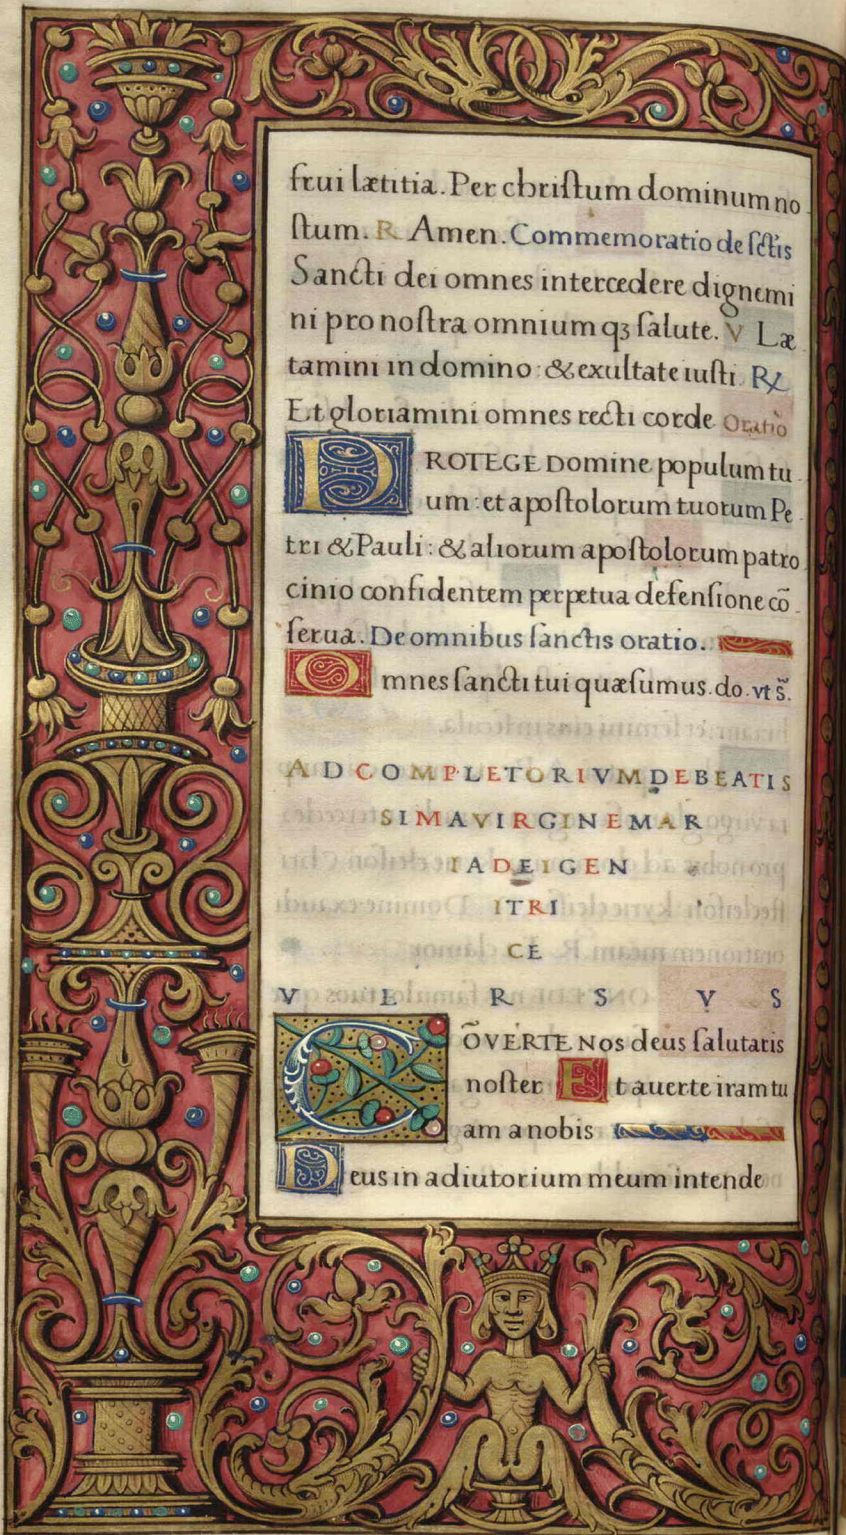 frui lætitia. Per christum dominum no
stum. R Amen. Commemoratio de sctis
Sancti dei omnes intercedere dignemi
ni pro nostra omnium qꝫ salute. V Læ
tamini in domino: & exultate iusti. ℞
Et gloriamini omnes recti corde Oratio
PROTEGE Domine populum tu
um: et apostolorum tuorum Pe
tri & Pauli: & aliorum apostolorum patro
cinio confidentem perpetua defensione cõ
serua. De omnibus sanctis oratio.
Omnes sancti tui quæsumus. do. vt s̃.
AD COMPLETORIVM DE BEATIS
SIMA VIRGINE MAR
IA DEI GEN
ITRI
CE
VERSVS
CÕVERTE Nos deus salutaris
noster Et auerte iram tu
am a nobis
Deus in adiutorium meum intende